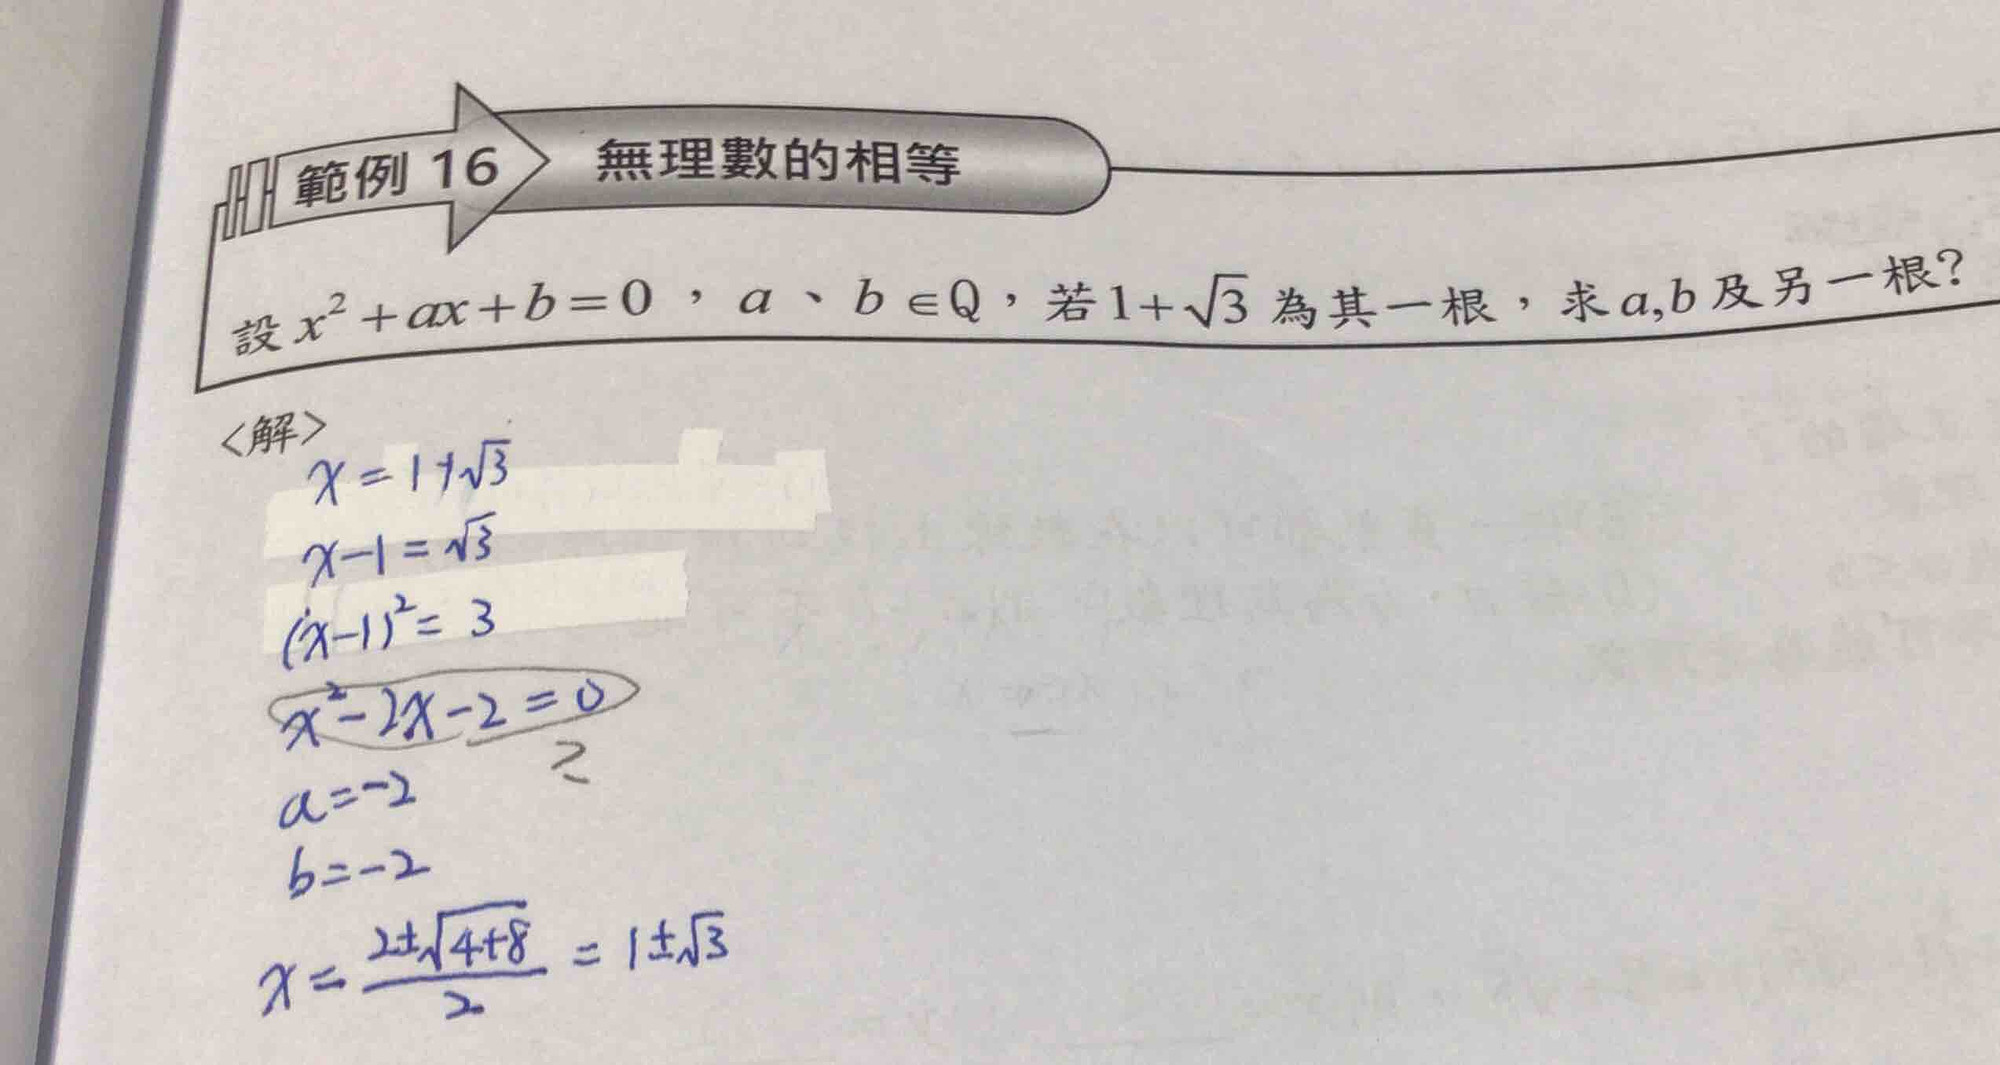 範例 16 無理數的相等
設 x² + ax + b = 0，a、b ∈ Q，若 1+√3 為其一根，求 a,b 及另一根?
<解>
x = 1+√3
x-1 = √3
(x-1)² = 3
x²-2x-2 = 0
2
a=-2
b=-2
x = (2±√(4+8))/2 = 1±√3